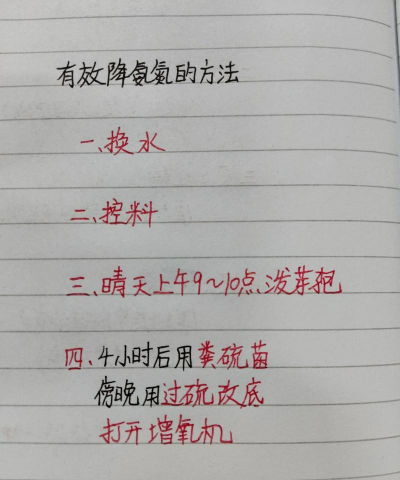 有效降氨氮的方法
一、换水
二、控料
三、晴天上午9~10点、泼芽孢
四、4小时后用粪硫菌
傍晚用过硫改底
打开增氧机